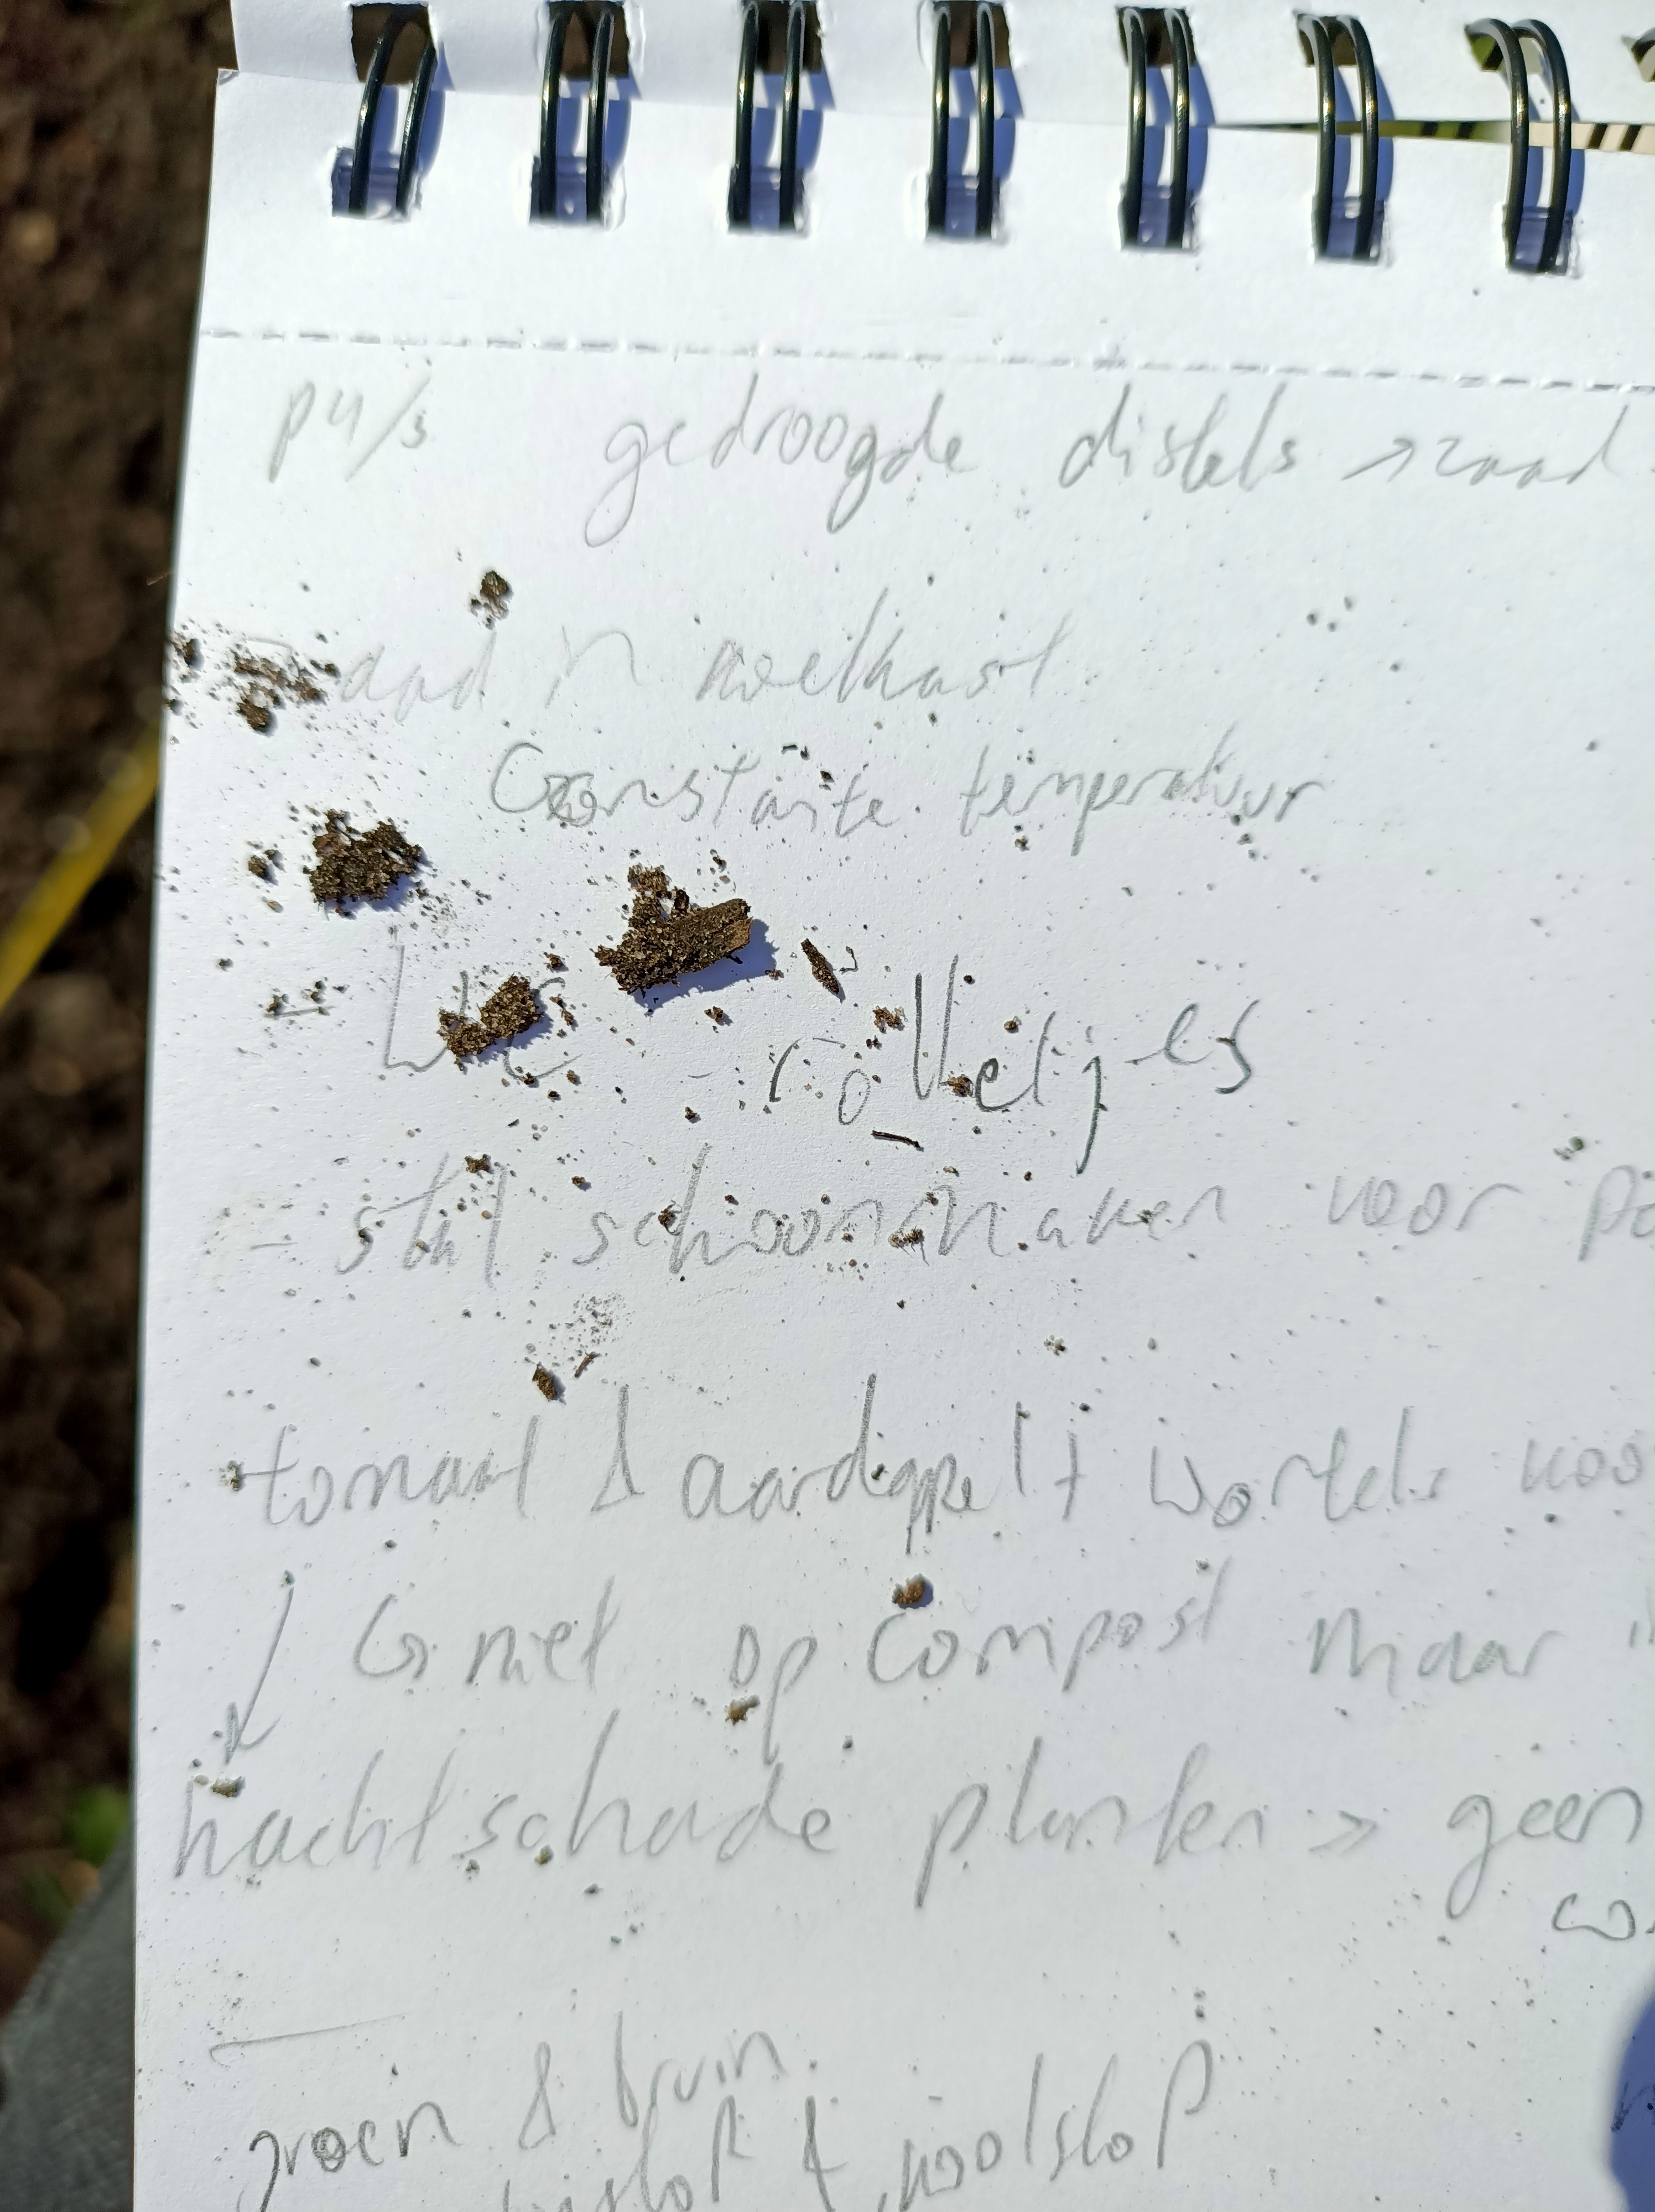 gedroogde distels → zaad
in koelkast
Constante temperatuur
WC - rolletjes
- stal schoonmaken voor
tomaat & aardappel + wortels
↳ niet op compost maar
nachtschade planten > geen
groen & bruin
& koolstof